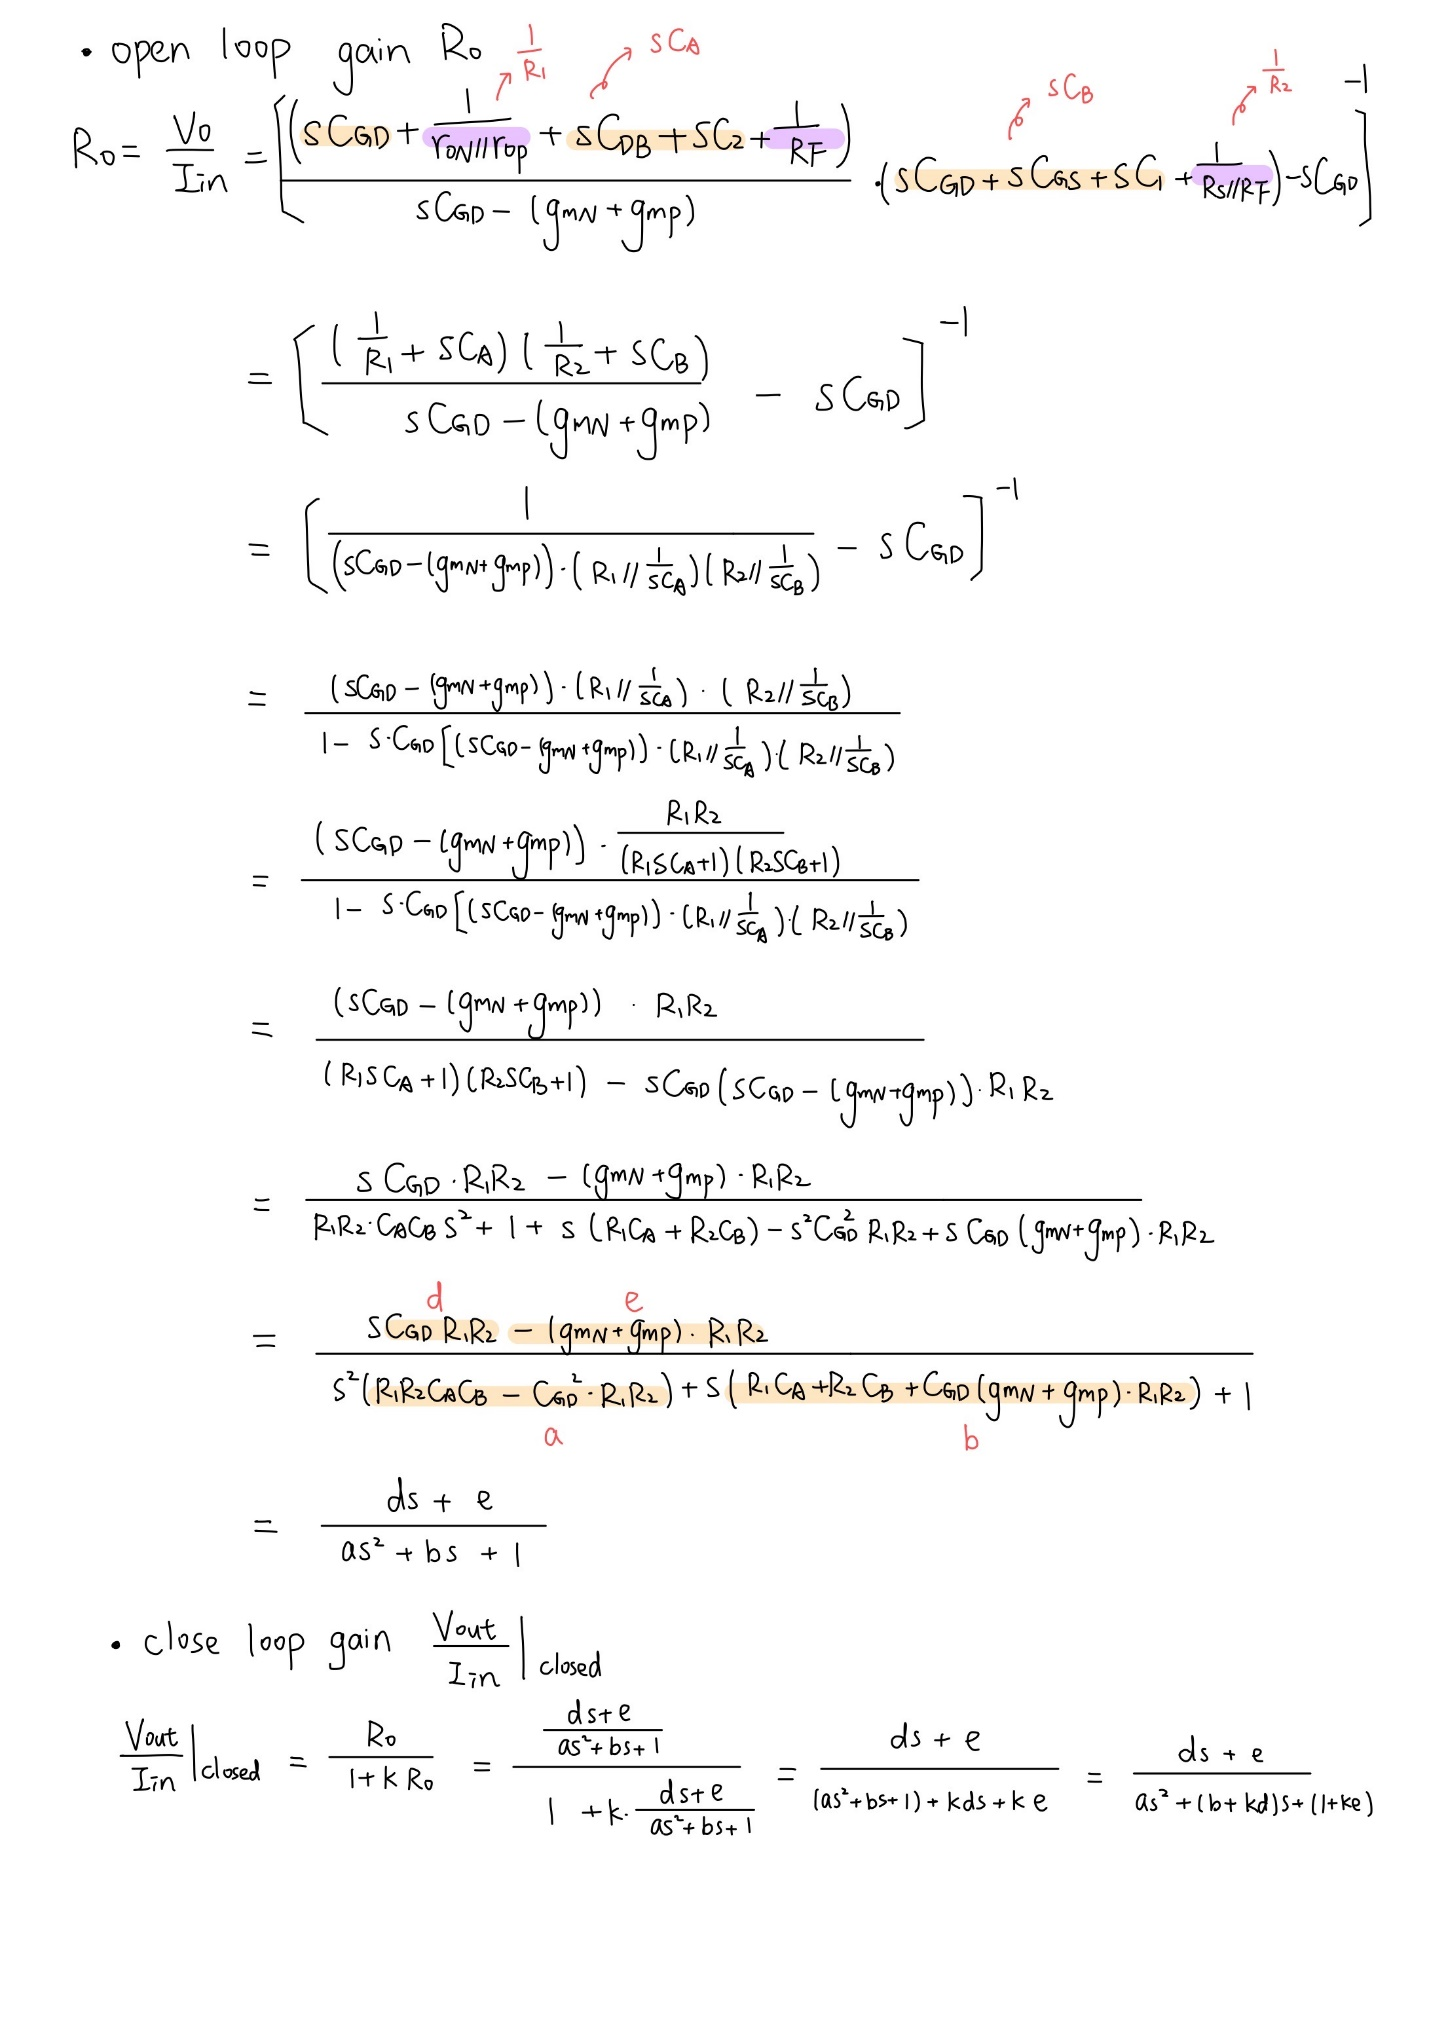 • open loop gain Ro
1/R1 sCA sCB 1/R2
Ro = Vo/Iin = [ (sCGD + 1/(roN//rop) + sCDB + sC2 + 1/RF) / (sCGD - (gmN + gmp)) · (sCGD + sCGS + sC1 + 1/(Rs//RF)) - sCGD ]^-1
= [ (1/R1 + sCA)(1/R2 + sCB) / (sCGD - (gmN + gmp)) - sCGD ]^-1
= [ 1 / ((sCGD - (gmN + gmp)) · (R1 // 1/sCA)(R2 // 1/sCB)) - sCGD ]^-1
= (sCGD - (gmN + gmp)) · (R1 // 1/sCA) · (R2 // 1/sCB) / 1 - s·CGD[(sCGD - (gmN + gmp)) · (R1 // 1/sCA)·(R2 // 1/sCB)
= (sCGD - (gmN + gmp)) · R1R2/((R1sCA+1)(R2sCB+1)) / 1 - s·CGD[(sCGD - (gmN + gmp)) · (R1 // 1/sCA)·(R2 // 1/sCB)
= (sCGD - (gmN + gmp)) · R1R2 / (R1sCA+1)(R2sCB+1) - sCGD(sCGD - (gmN + gmp))·R1R2
= sCGD·R1R2 - (gmN + gmp)·R1R2 / R1R2·CACBs² + 1 + s(R1CA + R2CB) - s²CGD²R1R2 + sCGD(gmN + gmp)·R1R2
d e
= sCGDR1R2 - (gmN + gmp)·R1R2 / s²(R1R2CACB - CGD²·R1R2) + s(R1CA + R2CB + CGD(gmN + gmp)·R1R2) + 1
a b
= ds + e / as² + bs + 1
• close loop gain Vout/Iin |closed
Vout/Iin |closed = Ro/(1+kRo) = ((ds+e)/(as²+bs+1)) / (1 + k·(ds+e)/(as²+bs+1)) = ds + e / (as²+bs+1) + kds + ke = ds + e / as² + (b+kd)s + (1+ke)